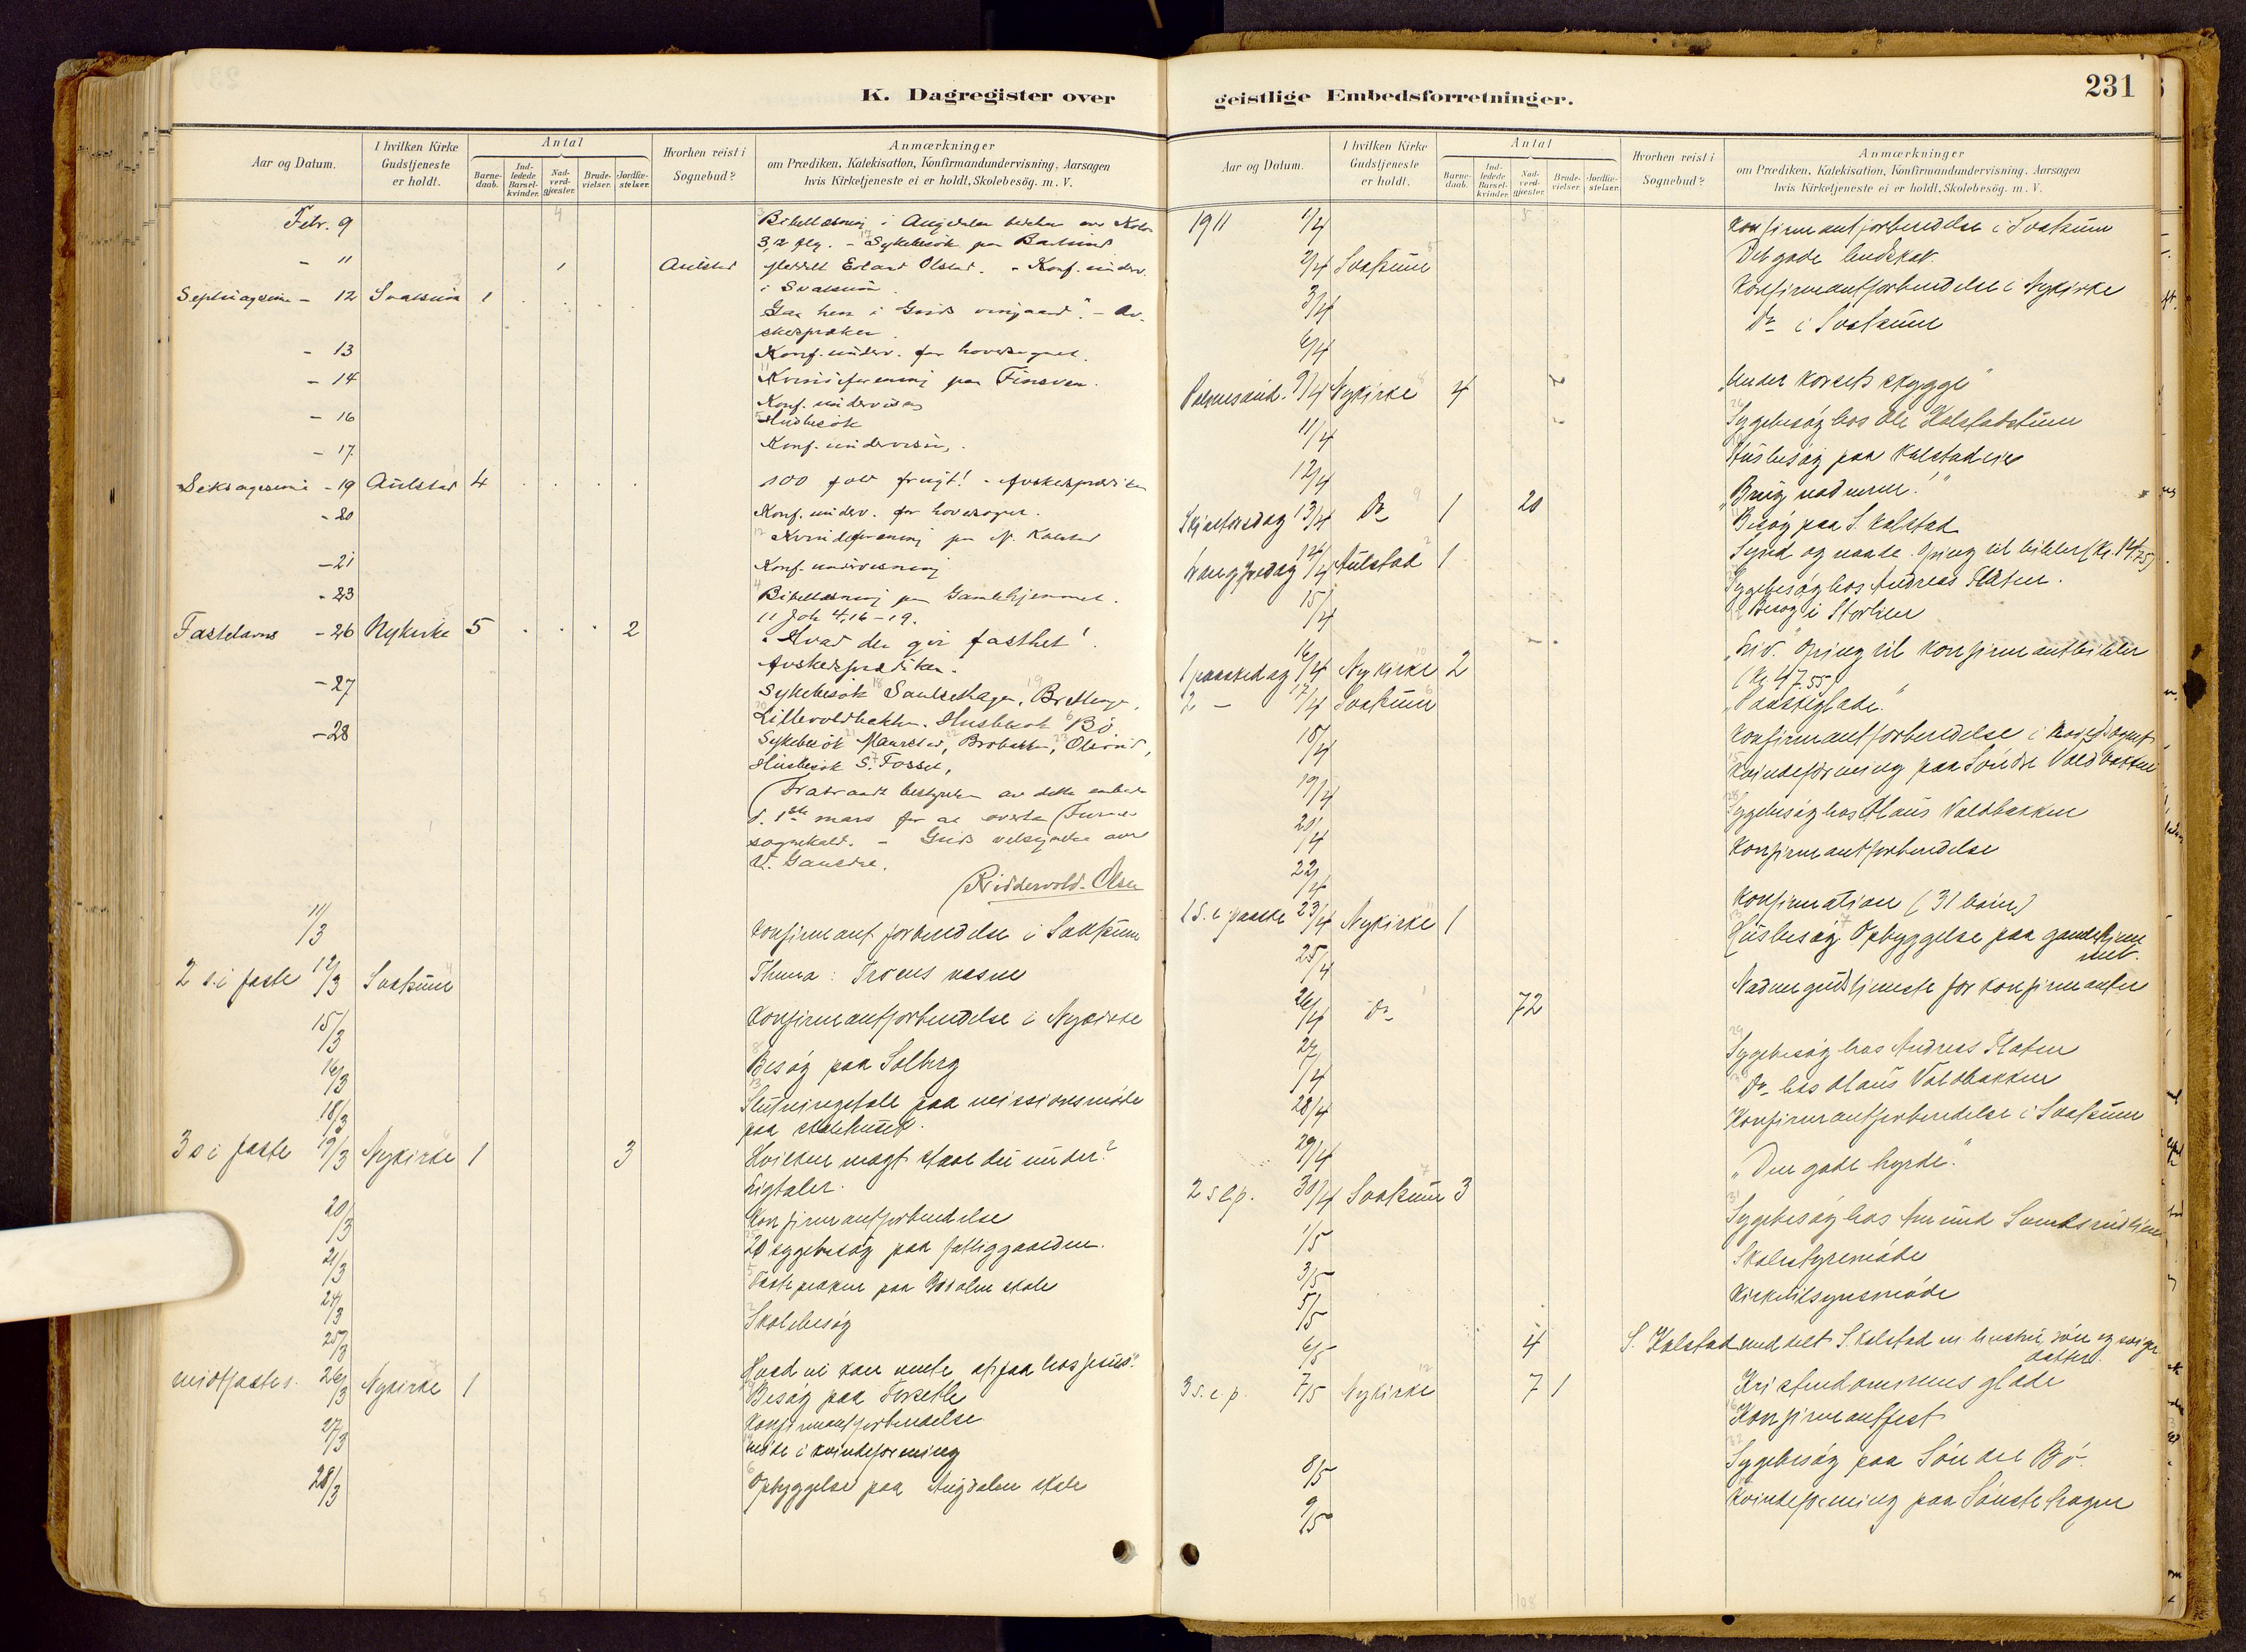 K. Dagregister over
Aar og Datum.
I hvilken Kirke Gudstjeneste er holdt.
Antal
Barnedaab.
Indledede Barselkvinder.
Nadverdgjæster.
Brudevielser.
Jordfæstelser.
Hvorhen reist i Sognebud?
Anmærkninger
om Prædiken, Katekisation, Konfirmandundervisning, Aarsagen
hvis Kirketjeneste ei er holdt, Skolebesög. m. V.
Febr. 9 Bibellæsning i Augdalen
3,12 flg. - Sykebesök paa
- 11 1 Aulstad Olstad. - Konf. underv.
i Svatsum.
Septuagesima - 12 Svatsum 1 Gaa hen i Guds vingaard". - Av-
skedspræken
- 13 Konf. underv. for hovedsognet.
- 14 Kvindeforening paa
Konf. undervisning
- 16 Husbesök
- 17. Konf. undervisning.
Seksagesima - 19 Aulstad 4 100 fold frugt! - Avskedsprædiken
- 20 Konf. underv. for hovedsognet.
Kvindeforening paa N. Kalstad
- 21 Konf. undervisning
- 23 Bibellæsning paa Gamlehjemmet.
1 Joh 4,16-19.
Fastelavns - 26 Nykirke 5 2 "Hvad der gir fasthet!
Avskedsprædiken.
- 27 Sykebesök
Husbesök Bö
- 28 Sykebesök
Husbesök S. Fosset,
Fratraadt bestyrelsen av dette embede
d. 1ste mars for at overta
sognekald. - Guds velsignelse over
V. Gausdal.
Riddervold-Olsen
11/3 Konfirmantforberedelse i Svatsum
2 s. i faste 12/3 Svatsum Thema: Troens væsen
15/3 Konfirmantforberedelse i Nykirke
16/3 Besøg paa Solberg
18/3 Slutningstale paa missionsmöde
paa skolehuset.
3 s i faste 19/3 Nykirke 1 3 Hvilken magt staar du under?
Ligtaler.
20/3 Konfirmantforberedelse
21/3 20 sygebesøg paa fattiggaarden.
24/3 Fastepræken paa skole
25/3 Skolebesøg
midtfastes. 26/3 Nykirke 1 Hvad vi kan vente at faa hos Jesus".
Besøg paa Forsetle
27/3 Konfirmantforberedelse
möde i kvindeforening
28/3 Opbyggelse paa Augdalen skole
geistlige Embedsforretninger.
231
Aar og Datum.
I hvilken Kirke Gudstjeneste er holdt.
Antal
Barnedaab.
Indledede Barselkvinder.
Nadverdgjæster.
Brudevielser.
Jordfæstelser.
Hvorhen reist i Sognebud?
Anmærkninger
om Prædiken, Katekisation, Konfirmandundervisning. Aarsagen
hvis Kirketjeneste ei er holdt, Skolebesög. m. V.
1911 1/4 Konfirmantforberedelse i Svatsum
2/4 Svatsum Det gode budskab.
3/4 Konfirmantforberedelse i Nykirke
6/4 Do i Svatsum
Palmesönd. 9/4 Nykirke 4 "Under korsets skygge"
11/4 Sygebesøg hos Ole Kalstadstuen
12/4 Husbesøg paa Kalstadeie
Skjærtorsdag 13/4 Do 1 20 "Brug naderen!"
Besøg paa S. Kalstad
Langfredag 14/4 Aulstad 1 Synd og naade. Ofring til bibler (Kr. 14.75)
15/4 Sygebesøg hos Andreas Flaten.
Besøg i Storlien
1 paaskedag 16/4 Nykirke 2 "Liv." Ofring til konfirmantbibler
(Kr. 47.55)
2 - 17/4 Svatsum "Paaskeglæde."
18/4 Konfirmantforberedelse i hovedsognet
19/4 Kvindeforening paa Söndre Voldbakken
20/4 Sygebesøg hos Olaus Voldbakken
22/4 Konfirmantforberedelse
1 S. e. paaske 23/4 Nykirke 1 Konfirmation (31 börn)
25/4 Husbesøg. Opbyggelse paa gamlehjem
met.
26/4 Do 72 Nadvergudstjeneste for konfirmanter
27/4 Sygebesøg hos Andreas Flaten
28/4 Do hos Olaus Voldbakken
29/4 Konfirmantforberedelse i Svatsum
2 s e p. 30/4 Svatsum 3 "Den gode hyrde."
1/5 Sygebesøg hos Amund
3/5 Skolestyremöde
5/5 Kirketilsynsmöde
6/5 4 S. Kalstad meddelt S. Kalstad m. hustru, sön og sviger
datter.
3 s. e. p. 7/5 Nykirke 7 1 Kristendommens glæde
Konfirmantfest
8/5 Sygebesøg paa Söndre Bö.
9/5 Kvindeforening paa
108